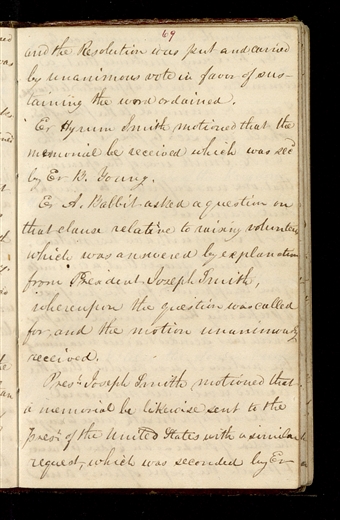 69
and the Resolution was put and carried
by unanimous vote in favor of sus-
taining the word ordained.
Er Hyrum Smith motioned that the
memorial be received which was secd
by Er B. Young.
Er A. Babbit asked a question on
that clause relative to raising volunteers
which was answered by explanation
from President Joseph Smith,
whereupon the question was called
for, and the motion unanimously
received.
Prest. Joseph Smith motioned that
a memorial be likewise sent to the
prest of the United States with a similar
request, which was seconded by Er